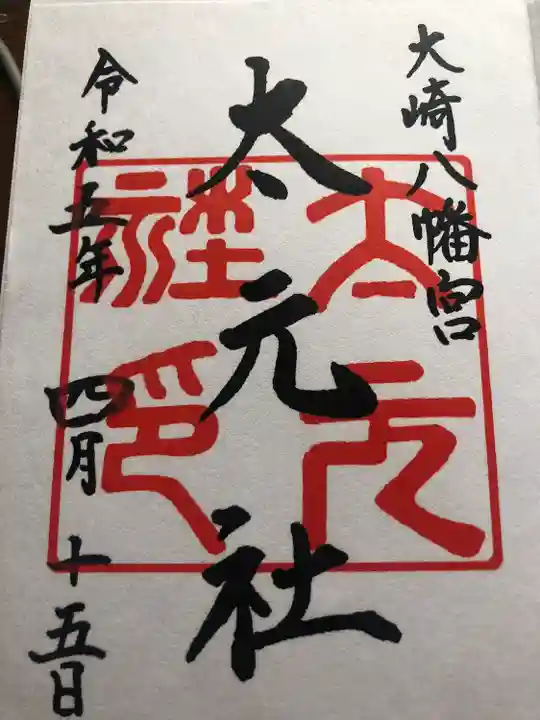 大崎八幡宮
太元社
令和五年 四月 十五日
太元社印